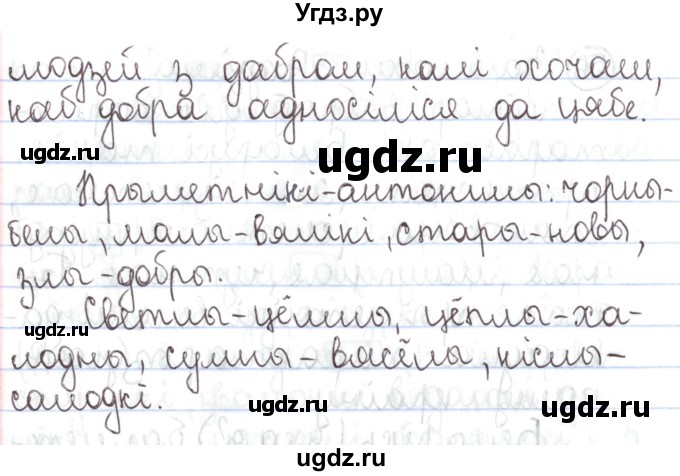 Угдз.ру
людзей з дабром, калі хочаш,
каб добра адносіліся да цябе.
ugdz.ru
ugdz.ru
ugdz.ru
Прыметнікі-антонімы: чорны-
белы, малы-вялікі, стары-новы,
злы-добры.
ugdz.ru
Светлы-цёмны, цёплы-ха-
ugdz.ru
лодны, сумны-вясёлы, кіслы-
салодкі.
ugdz.ru
ugdz.ru